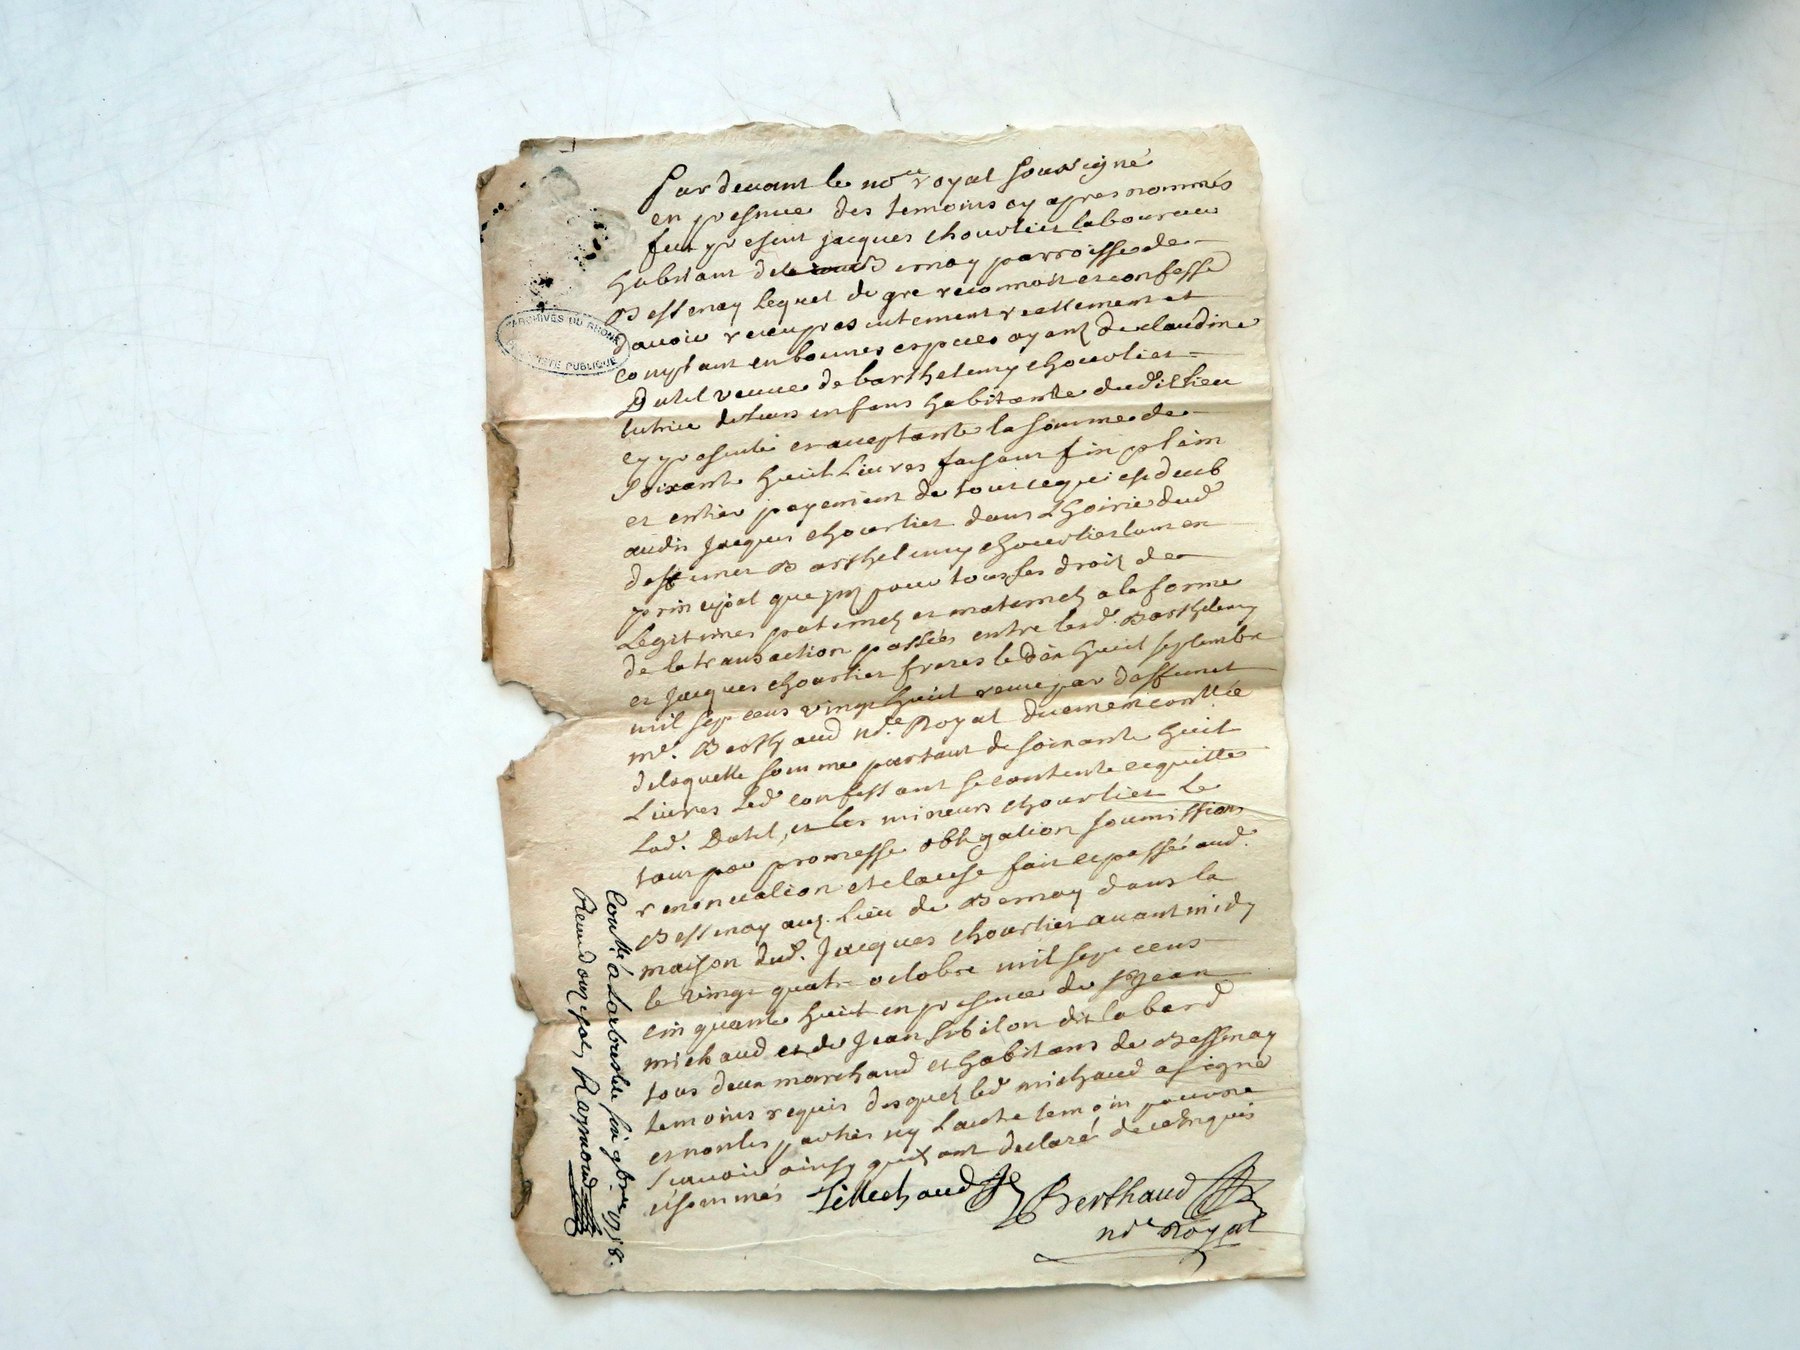 Par devant le no.re royal sousigné
en presence des temoins cy apres nommés
fut present jacques chourlier laboureur
habitant de Bernay parroisse de
Bessenay lequel de gre reconnoit et confesse
d'avoir receu presentement reellement et
comptant en bonnes especes ayant de claudine
Dutel veuve de barthelemy chourlier
tutrice de leurs enfans habitante dudit lieu
cy presente et acceptante la somme de
soixante huit Livres faisant fin plain
et entier payement de tout ce qui est deub
audit Jacques chourlier dans Lhoirie dud.
deffunct Barthelemy chourlier tant en
principal que pour tous les droit de
Legitimes paternels et maternels a la forme
de la transaction passées entre lesd. Barthelemy
et Jacques chourlier freres le dix huit septembre
mil sept cens vingt huit receue par deffunct
me. Berthaud no.re Royal duement con.llée
de laquelle somme partant de soixante huit
Livres Led. confessant se contente et quitte
Lad. Dutel, et les mineurs chourlier le
tout par promesse obligation soumissions
renonciation et clause fait et passé aud.
Bessenay au lieu de Bernay dans la
maison dud. Jacques chourlier avant midy
le vingt quatre octobre mil sept cens
cinquante huit en presence de Sr Jean
michaud et de Jean Subilon dit labard
tous deux marchand et habitans de Bessenay
temoins requis desquels led. michaud a signé
et non les parties ny l'autre temoin pour ne
scavoir ainsy quils ont declaré de ce enquis
et sommés Michaud Berthaud
no.re Royal
Con.llé à Larbresle le 9bre 1758.
Receu douze sols Raymond
ARCHIVES DU RHONE
PUBLIQUE